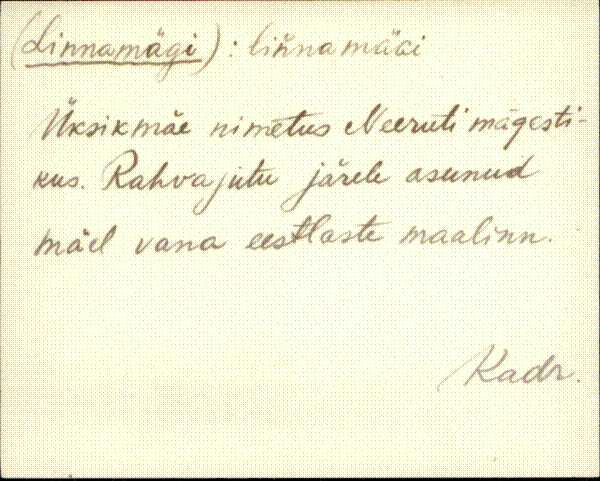 (Linnamägi): liǹnamäGi
Üksikmäe nimetus Neeruti mägesti-
kus. Rahvajutu järele asunud
mäel vana eestlaste maalinn.
Kadr.